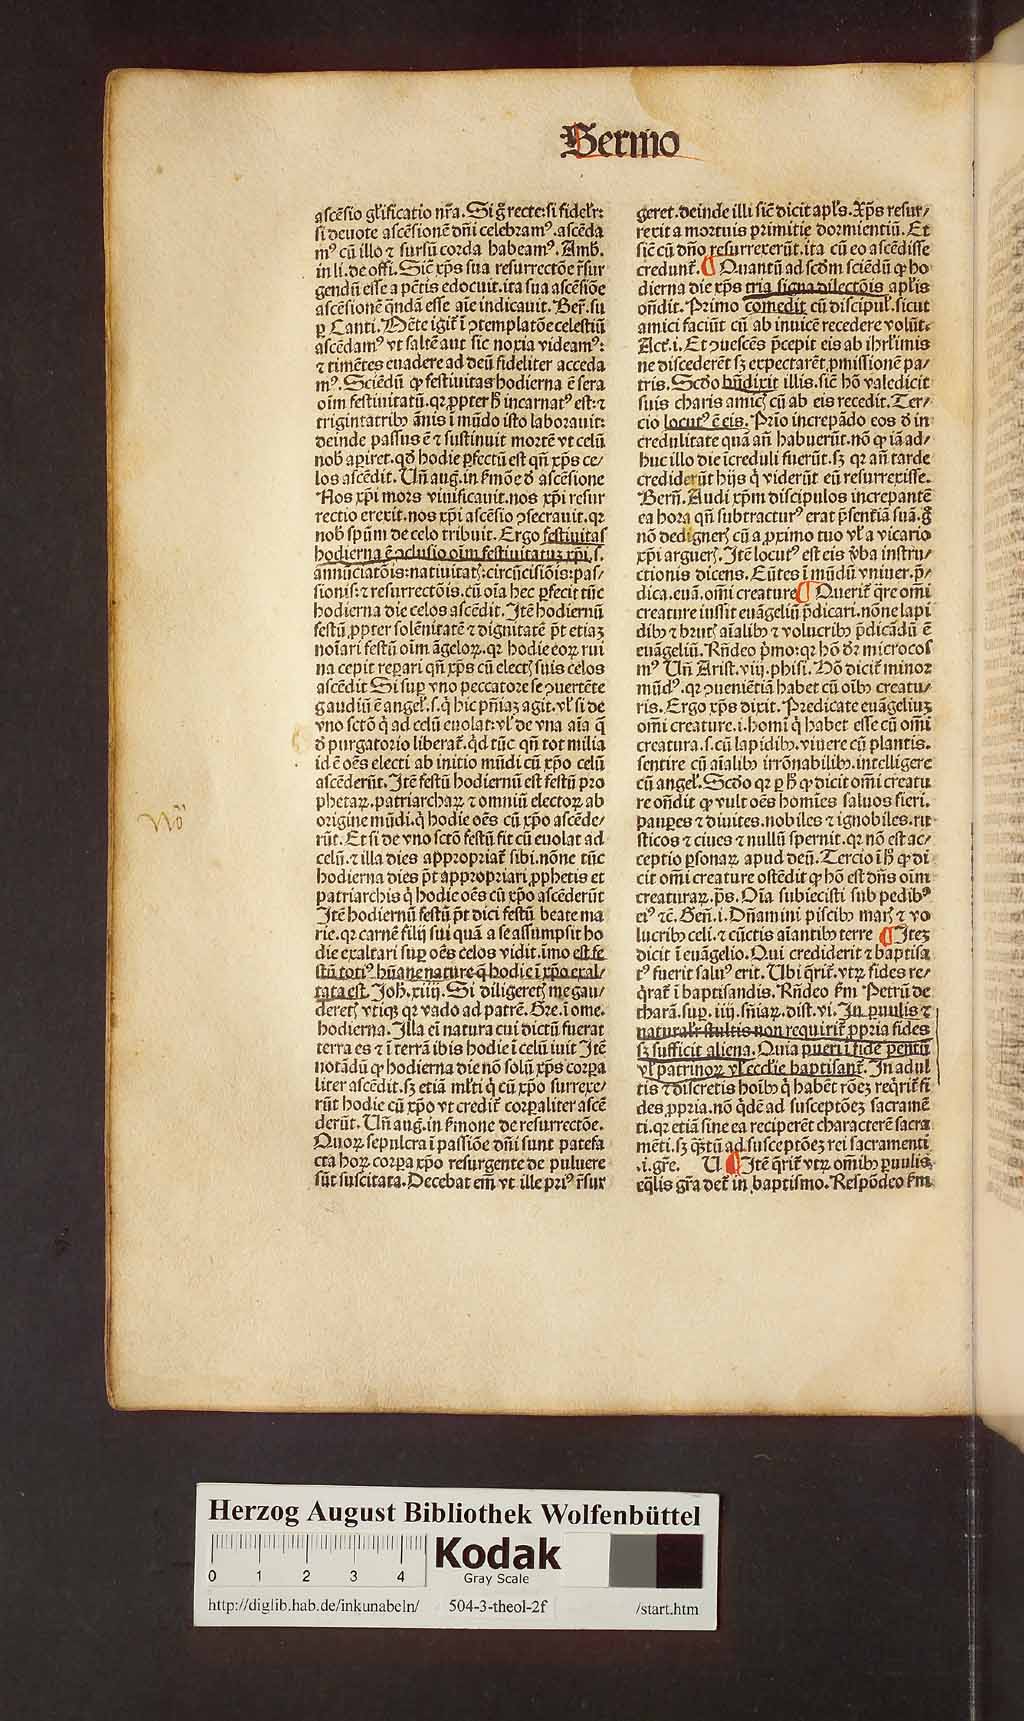 Sermo
ascēsio gl'ificatio nr̄a. Si g̊ recte: si fidelr̄:
si deuote ascēsionē dn̄i celebramꝰ. ascēda
mꝰ cū illo ⁊ sursū corda habeamꝰ. Amb.
in li. de offi. Sic̄ xp̄s sua resurrectōe r̄sur
gendū esse a pc̄tis edocuit. ita sua ascēsiōe
ascēsionē qn̄da esse aīe indicauit. Ber̄. su
ꝑ Canti. Mēte igit̄ ī ꝯtemplatōe celestiū
ascēdamꝰ vt saltē aut sic noxia videamꝰ:
⁊ timētes euadere ad deū fideliter acceda
mꝰ. Sciēdū ꝙ festiuitas hodierna ē sera
oīm festiuitatū. qꝛ ꝓpter h̄ incarnatꝰ est: ⁊
trigintatribꝫ ānis ī mūdo isto laborauit:
deinde passus ē ⁊ sustinuit mortē vt celū
nob̄ aꝑiret. qd̄ hodie ꝑfectū est qn̄ xp̄s ce/
los ascēdit. Un̄ aug. in ẜmōe ð ascēsione
Nos xp̄i mors viuificauit. nos xp̄i resur
rectio erexit. nos xp̄i ascēsio ꝯsecrauit. qꝛ
nob̄ spūm de celo tribuit. Ergo festiuitas
hodierna ē ꝯclusio oīm festiuitatuꝫ xp̄i. s.
annūciatōis: natiuitatꝭ: circūcisiōis: pas/
sionis: ⁊ resurrectōis. cū oīa hec ꝑfecit tūc
hodierna die celos ascēdit. Itē hodiernū
festū ꝓpter solēnitatē ⁊ dignitatē p̄t etiaꝫ
noīari festū oīm āgeloꝝ. qꝛ hodie eoꝝ rui
na cepit reꝑari qn̄ xp̄s cū electꝭ suis celos
ascēdit Si suꝑ vno peccatore se ꝯuertēte
gaudiū ē angel'. s. q̇ hic pn̄iaꝫ agit. vl' si de
vno sctō q̇ ad celū euolat: vl' de vna aīa q̄
ð purgatorio liberat̄. qd̄ tūc qn̄ tot milia
id ē oēs electi ab initio mūdi cū xp̄o celū
ascēderūt. Itē festū hodiernū est festū pro
phetaꝝ. patriarchaꝝ ⁊ omniū electoꝝ ab
origine mūdi. q̇ hodie oēs cū xp̄o ascēde/
rūt. Et si de vno sctō festū fit cū euolat ad
celū. ⁊ illa dies appropriat̄ sibi. nōne tūc
hodierna dies p̄t appropriari ꝓphetis et
patriarchis q̇ hodie oēs cū xp̄o ascēderūt
Itē hodiernū festū p̄t dici festū beate ma
rie. qꝛ carnē filij sui quā a se assumpsit ho
die exaltari suꝑ oēs celos vidit. īmo est fe
stū totiꝰ hūane nature q̄ hodie ī xp̄o exal/
tata est. Joh̄. xiiij. Si diligeretꝭ me gau/
deretꝭ vtiqꝫ qꝛ vado ad patrē. Gre. ī ome.
hodierna. Illa ei natura cui dictū fuerat
terra es ⁊ ī terrā ibis hodie ī celū iuit Itē
notādū ꝙ hodierna die nō solū xp̄s corꝑa
liter ascēdit. sꝫ etiā ml'ti q̇ cū xp̄o surrexe/
rūt hodie cū xp̄o vt credit̄ corꝑaliter ascē
derūt. Un̄ aug. in ẜmone de resurrectōe.
Quoꝝ sepulcra ī passiōe dn̄i sunt patefa
cta hoꝝ corꝑa xp̄o resurgente de puluere
sūt suscitata. Decebat em̄ vt ille priꝰ r̄sur
geret. deinde illi sic̄ dicit apl's. Xp̄s resur/
rexit a mortuis primitie dormientiū. Et
sic̄ cū dn̄o resurrexerūt. ita cū eo ascēdisse
credunt̄. Quantū ad scd̄m sciēdū ꝙ ho
dierna die xp̄s tria signa dilectōis apl'is
on̄dit. Primo comedit cū discipul'. sicut
amici faciūt cū ab inuicē recedere volūt.
Act̄. i. Et ꝯuescēs p̄cepit eis ab ihrl'imis
ne discederēt sꝫ expectarēt ꝓmissionē pa/
tris. Scd̄o bn̄dixit illis. sic̄ hō valedicit
suis charis amicꝭ cū ab eis recedit. Ter/
cio locutꝰ ē eis. Prio increpādo eos ð in
credulitate quā an̄ habuerūt. nō ꝙ iā ad/
huc illo die īcreduli fuerūt. sꝫ qꝛ an̄ tarde
crediderūt hijs q̇ viderūt eū resurrexisse.
Bern̄. Audi xp̄m discipulos increpantē
ea hora qn̄ subtracturꝰ erat p̄sent̄iā suā. g̊
nō dedignerꝭ cū a ꝓximo tuo vl' a vicario
xp̄i arguerꝭ. Itē locutꝰ est eis v̄ba instru/
ctionis dicens. Eūtes ī mūdū vniuer. p̄/
dica. euā. om̄i creature Querit̄ q̄re om̄i
creature iussit euāgeliū p̄dicari. nōne lapi
dibꝫ ⁊ brutꝭ aīalibꝫ ⁊ volucribꝫ p̄dicādū ē
euāgeliū. Rn̄deo p̄mo: qꝛ hō dr̄ microcos
mꝰ Un̄ Arist. viij. phisi. Hō dicit̄ minor
mūdꝰ. qꝛ ꝯueniētiā habet cū oībꝫ creatu/
ris. Ergo xp̄s dixit. Predicate euāgeliuꝫ
om̄i creature. i. homi q̇ habet esse cū om̄i
creatura. s. cū lapidibꝫ. viuere cū plantis.
sentire cū aīalibꝫ irrōnabilibꝫ. intelligere
cū angel'. Scd̄o qꝛ ꝑ h̄ ꝙ dicit om̄i creatu
re on̄dit ꝙ vult oēs homīes saluos fieri.
pauꝑes ⁊ diuites. nobiles ⁊ ignobiles. ru
sticos ⁊ ciues ⁊ nullū spernit. qꝛ nō est ac/
ceptio ꝑsonaꝝ apud deū. Tercio ī h̄ ꝙ di
cit om̄i creature ostēdit ꝙ hō est dn̄s oīm
creaturaꝝ. ps̄. Oīa subiecisti sub pedibꝰ
eiꝰ ⁊c̄. Gen̄. i. Dn̄amini piscibꝫ marꝭ ⁊ vo
lucribꝫ celi. ⁊ cūctis aīantibꝫ terre Iteꝫ
dicit ī euāgelio. Qui crediderit ⁊ baptisa
tꝰ fuerit saluꝰ erit. Ubi q̄rit̄. vtꝝ fides re/
q̇rat̄ ī baptisandis. Rn̄deo ẜm Petrū de
tharā. suꝑ. iiij. sn̄iaꝝ. dist. vi. In ꝑuulis ⁊
naturalr̄ stultis non requirit̄ ꝓpria fides
sꝫ sufficit aliena. Quia pueri ī fide parentū
vl' patrinoꝝ vl' eccl'ie baptisant̄. In adul
tis ⁊ discretis hoībꝫ q̇ habēt rōeꝫ req̇rit̄ fi
des ꝓpria. nō q̇dē ad susceptōeꝫ sacramē
ti. qꝛ etiā sine ea reciperēt characterē sacra
mēti. sꝫ q̄ꝫtū ad susceptōeꝫ rei sacramenti
.i. gr̄e. U Itē q̄rit̄ vtꝝ om̄ibꝫ ꝑuulis
eq̄lis gr̄a det̄ in baptismo. Respōdeo ẜm
Herzog August Bibliothek Wolfenbüttel
0 1 2 3 4
Kodak
Gray Scale
http://diglib.hab.de/inkunabeln/ 504-3-theol-2f /start.htm